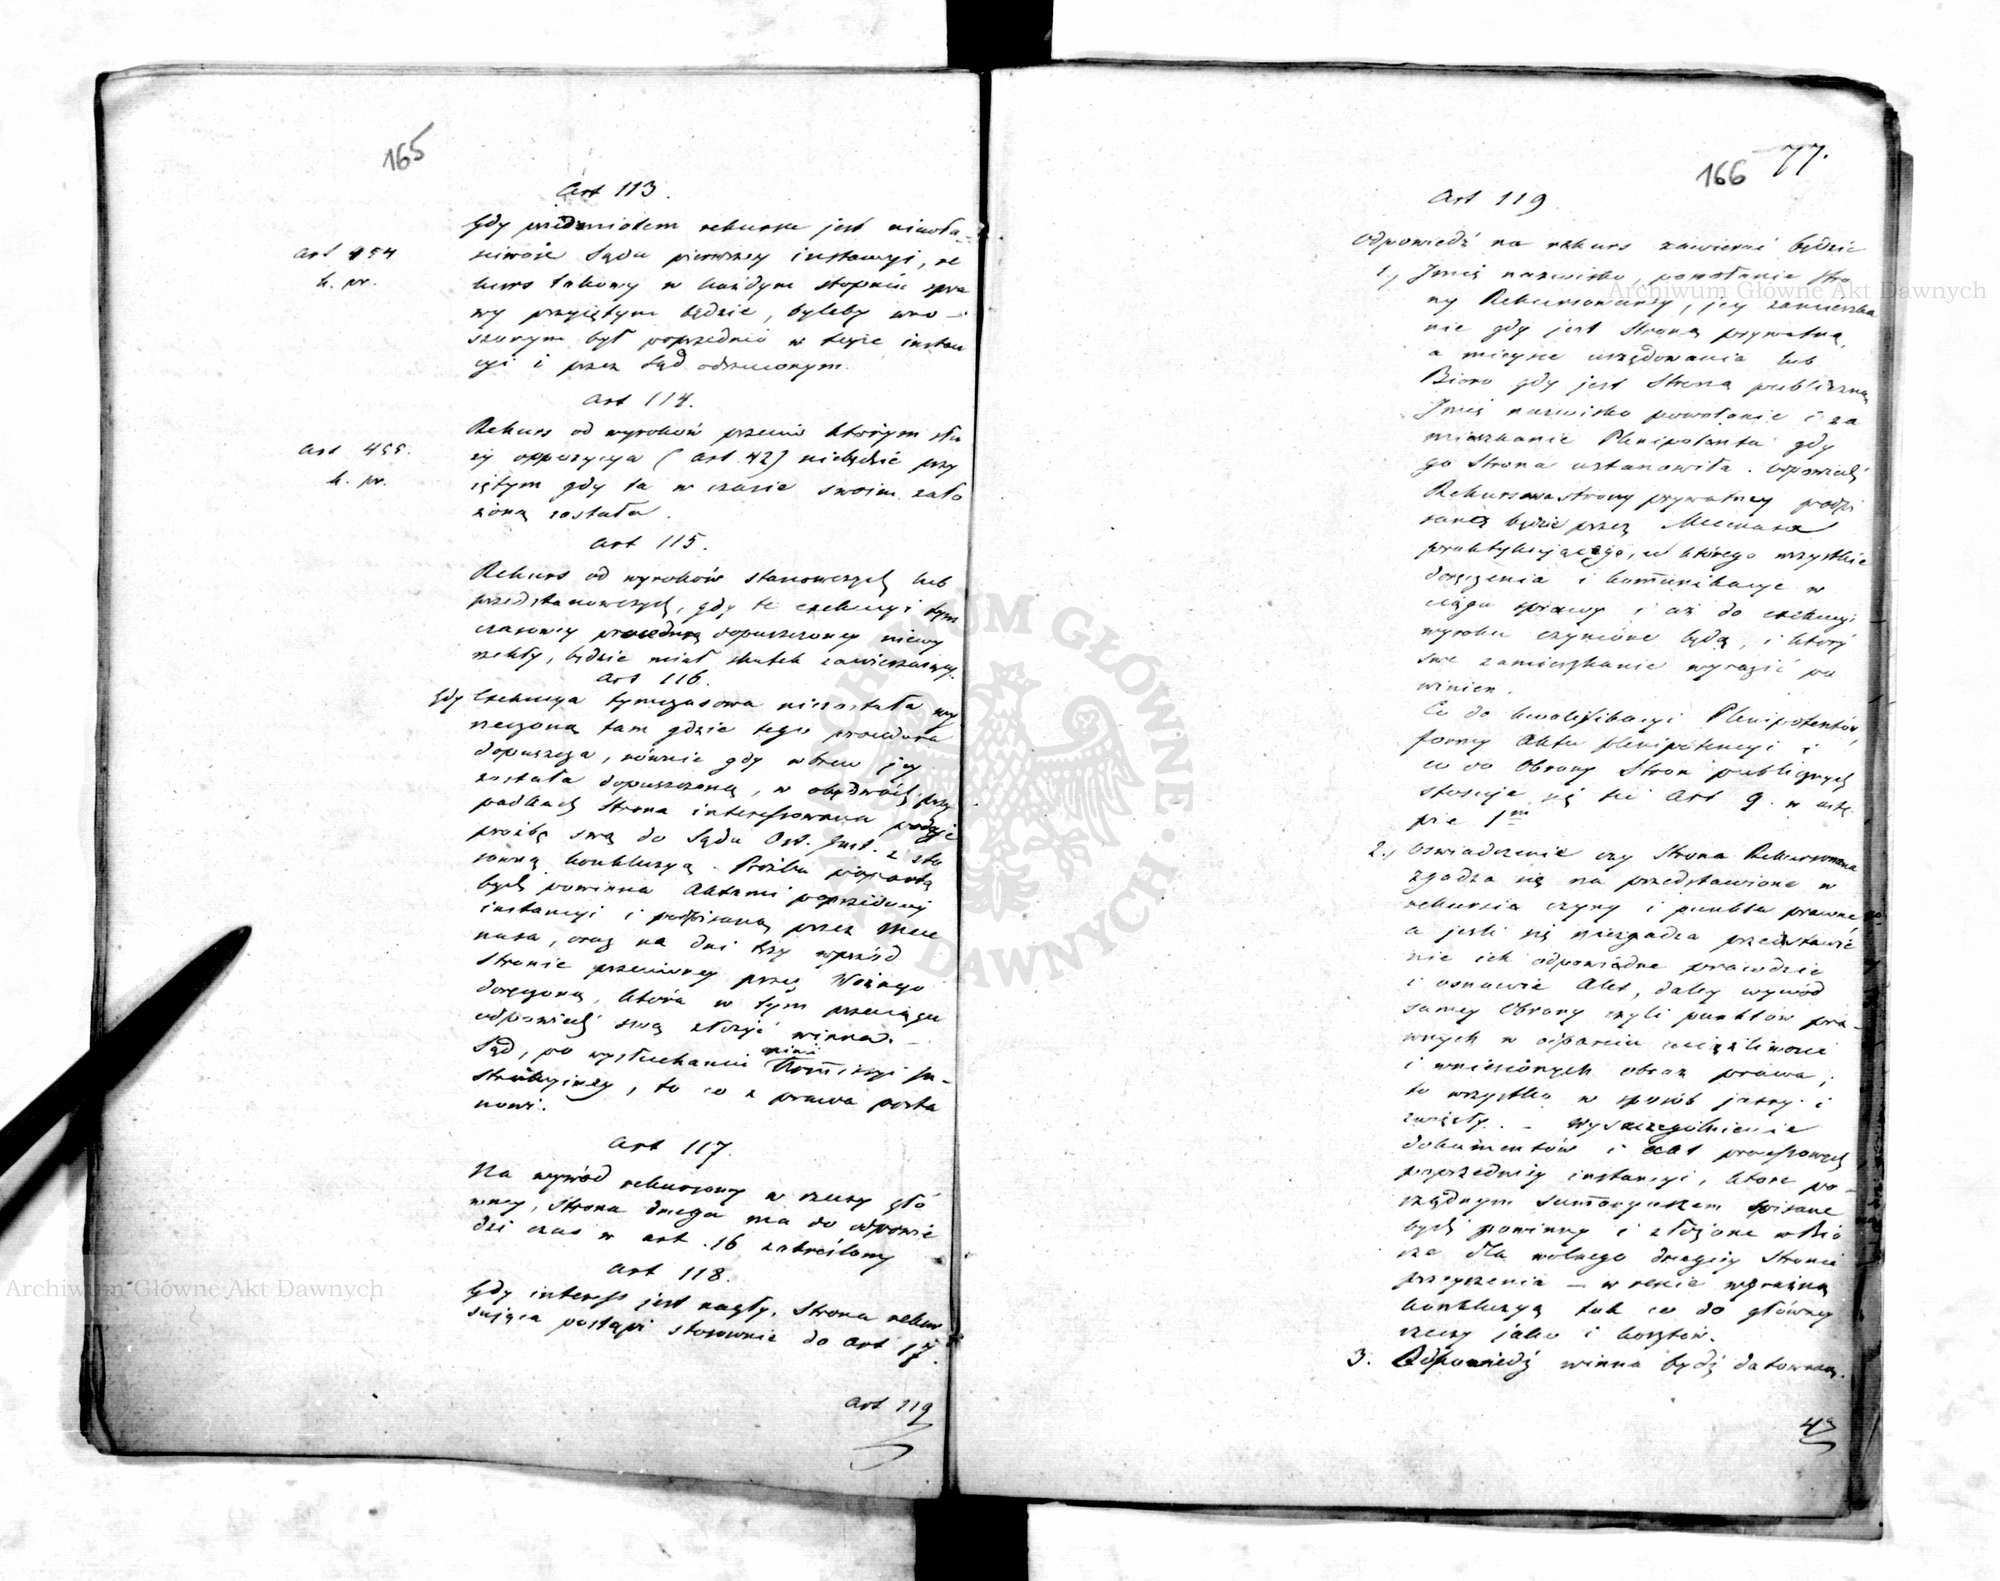 165
Art 113.
Gdy przedmiotem rekursu jest niewła-
ściwość Sądu pierwszey instancyi, re
kurs takowy w każdym stopniu spra
wy przyiętym będzie, byleby wno-
szonym był poprzednio w teyże instan
cyi i przez Sąd odrzuconym.
art 454
k. pr.
art 114.
Rekurs od wyroków przeciw którym słu
ży oppozycya (art. 42) niebędzie przy
iętym gdy ta w czasie swoim zało
żoną została.
art 455.
k. pr.
art 115.
Rekurs od wyroków stanowczych lub
przedstanowczych, gdy te exekucyi tym
czasowey procedurą dopuszczoney niewy
rzekły, będzie miał skutek zawieszaiący.
art 116.
Gdy Exekucya tymczasowa niezostała wy
rzeczoną tam gdzie tego procedura
dopuszcza, równie gdy wbrew jey
została dopuszczoną, w obydwóch przy
padkach Strona interessowana podaje
prożbę swą do Sądu Ost. Inst. z sto
sowną konkluzyą. Prożba poparta
bydź powinna Aktami poprzedniey
instancyi i podpisaną przez Mece
nasa, oraz na dni trzy wprzód
Stronie przeciwney przez Woźnego
doręczoną, która w tym przeciągu
odpowiedź swą złożyć winna. -
Sąd, po wysłuchaniu Kom̅issyi In-
strukcyiney, to co z prawa posta
nowi.
art 117.
Na wywód rekursowy w rzeczy głó
wney, Strona druga ma do odpowie
dzi czas w art. 16 zakreślony
art 118.
Gdy interess jest nagły, Strona rekur
sująca postąpi stosownie do art 17.
art 119
166 77.
Art 119
Odpowiedź na rekurs zawierać będzie
1., Jmię nazwisko, powołanie stro
ny Rekursowaney, jey zamieszka
nie gdy jest Stroną prywatną,
a mieysce urzędowania lub
Bioro gdy jest Stroną publiczną
Jmię nazwisko powołanie i za
mieszkanie Plenipotenta gdy
go Strona ustanowiła. Odpowiedź
Rekursowa strony prywatney podpi
saną będzie przez Mecenasa
praktykującego, u którego wszystkie
doręczenia i kom̅unikacye w
ciągu sprawy i aż do exekucyi
wyroku czynione będą, i który
swe zamieszkanie wyrazić po
winien.
Co do kwalifikacyi Plenipotentów,
formy Aktu plenipotencyi i
co do Obrony Stron publicznych
stosuje się tu Art 9. w ustę
pie 1m
2., Oświadczenie czy Strona Rekursowana
zgadza się na przedstawione w
rekursie czyny i punkta prawne
a jeśli się niezgadza przedstawie
nie ich odpowiedne prawdzie
i osnowie Akt, daley wywód
samey Obrony czyli punktów pra-
wnych w odparciu uciążliwości
i wniesionych obraz prawa;
to wszystko w sposób jasny i
zwięzły. - Wyszczególnienie
dokumentów i akt processowych
poprzedniey instancyi, które po-
rządnym sum̅aryuszem spisane
bydź powinny i złożone w Bió
rze dla wolnego drugiey Stronie
przeyrzenia - w reście wyraźną
konkluzyą tak co do główney
rzeczy jako i kosztów.
3. Odpowiedź winna bydź datowaną.